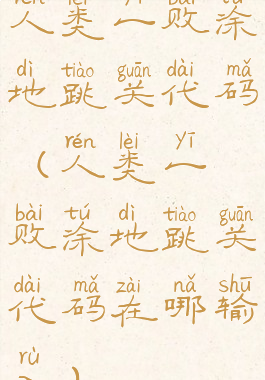 人类一败涂
dì tiào guān dài mǎ
地跳关代码
rén lèi yī
（人类一
bài tú dì tiào guān
败涂地跳关
dài mǎ zài nǎ shū
代码在哪输
rù
）